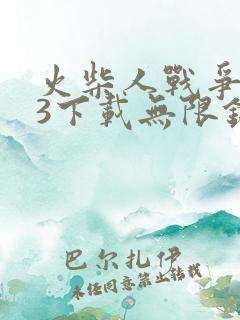 火柴人戰爭
3下載無限
巴尔扎伊
未经同意禁止转载